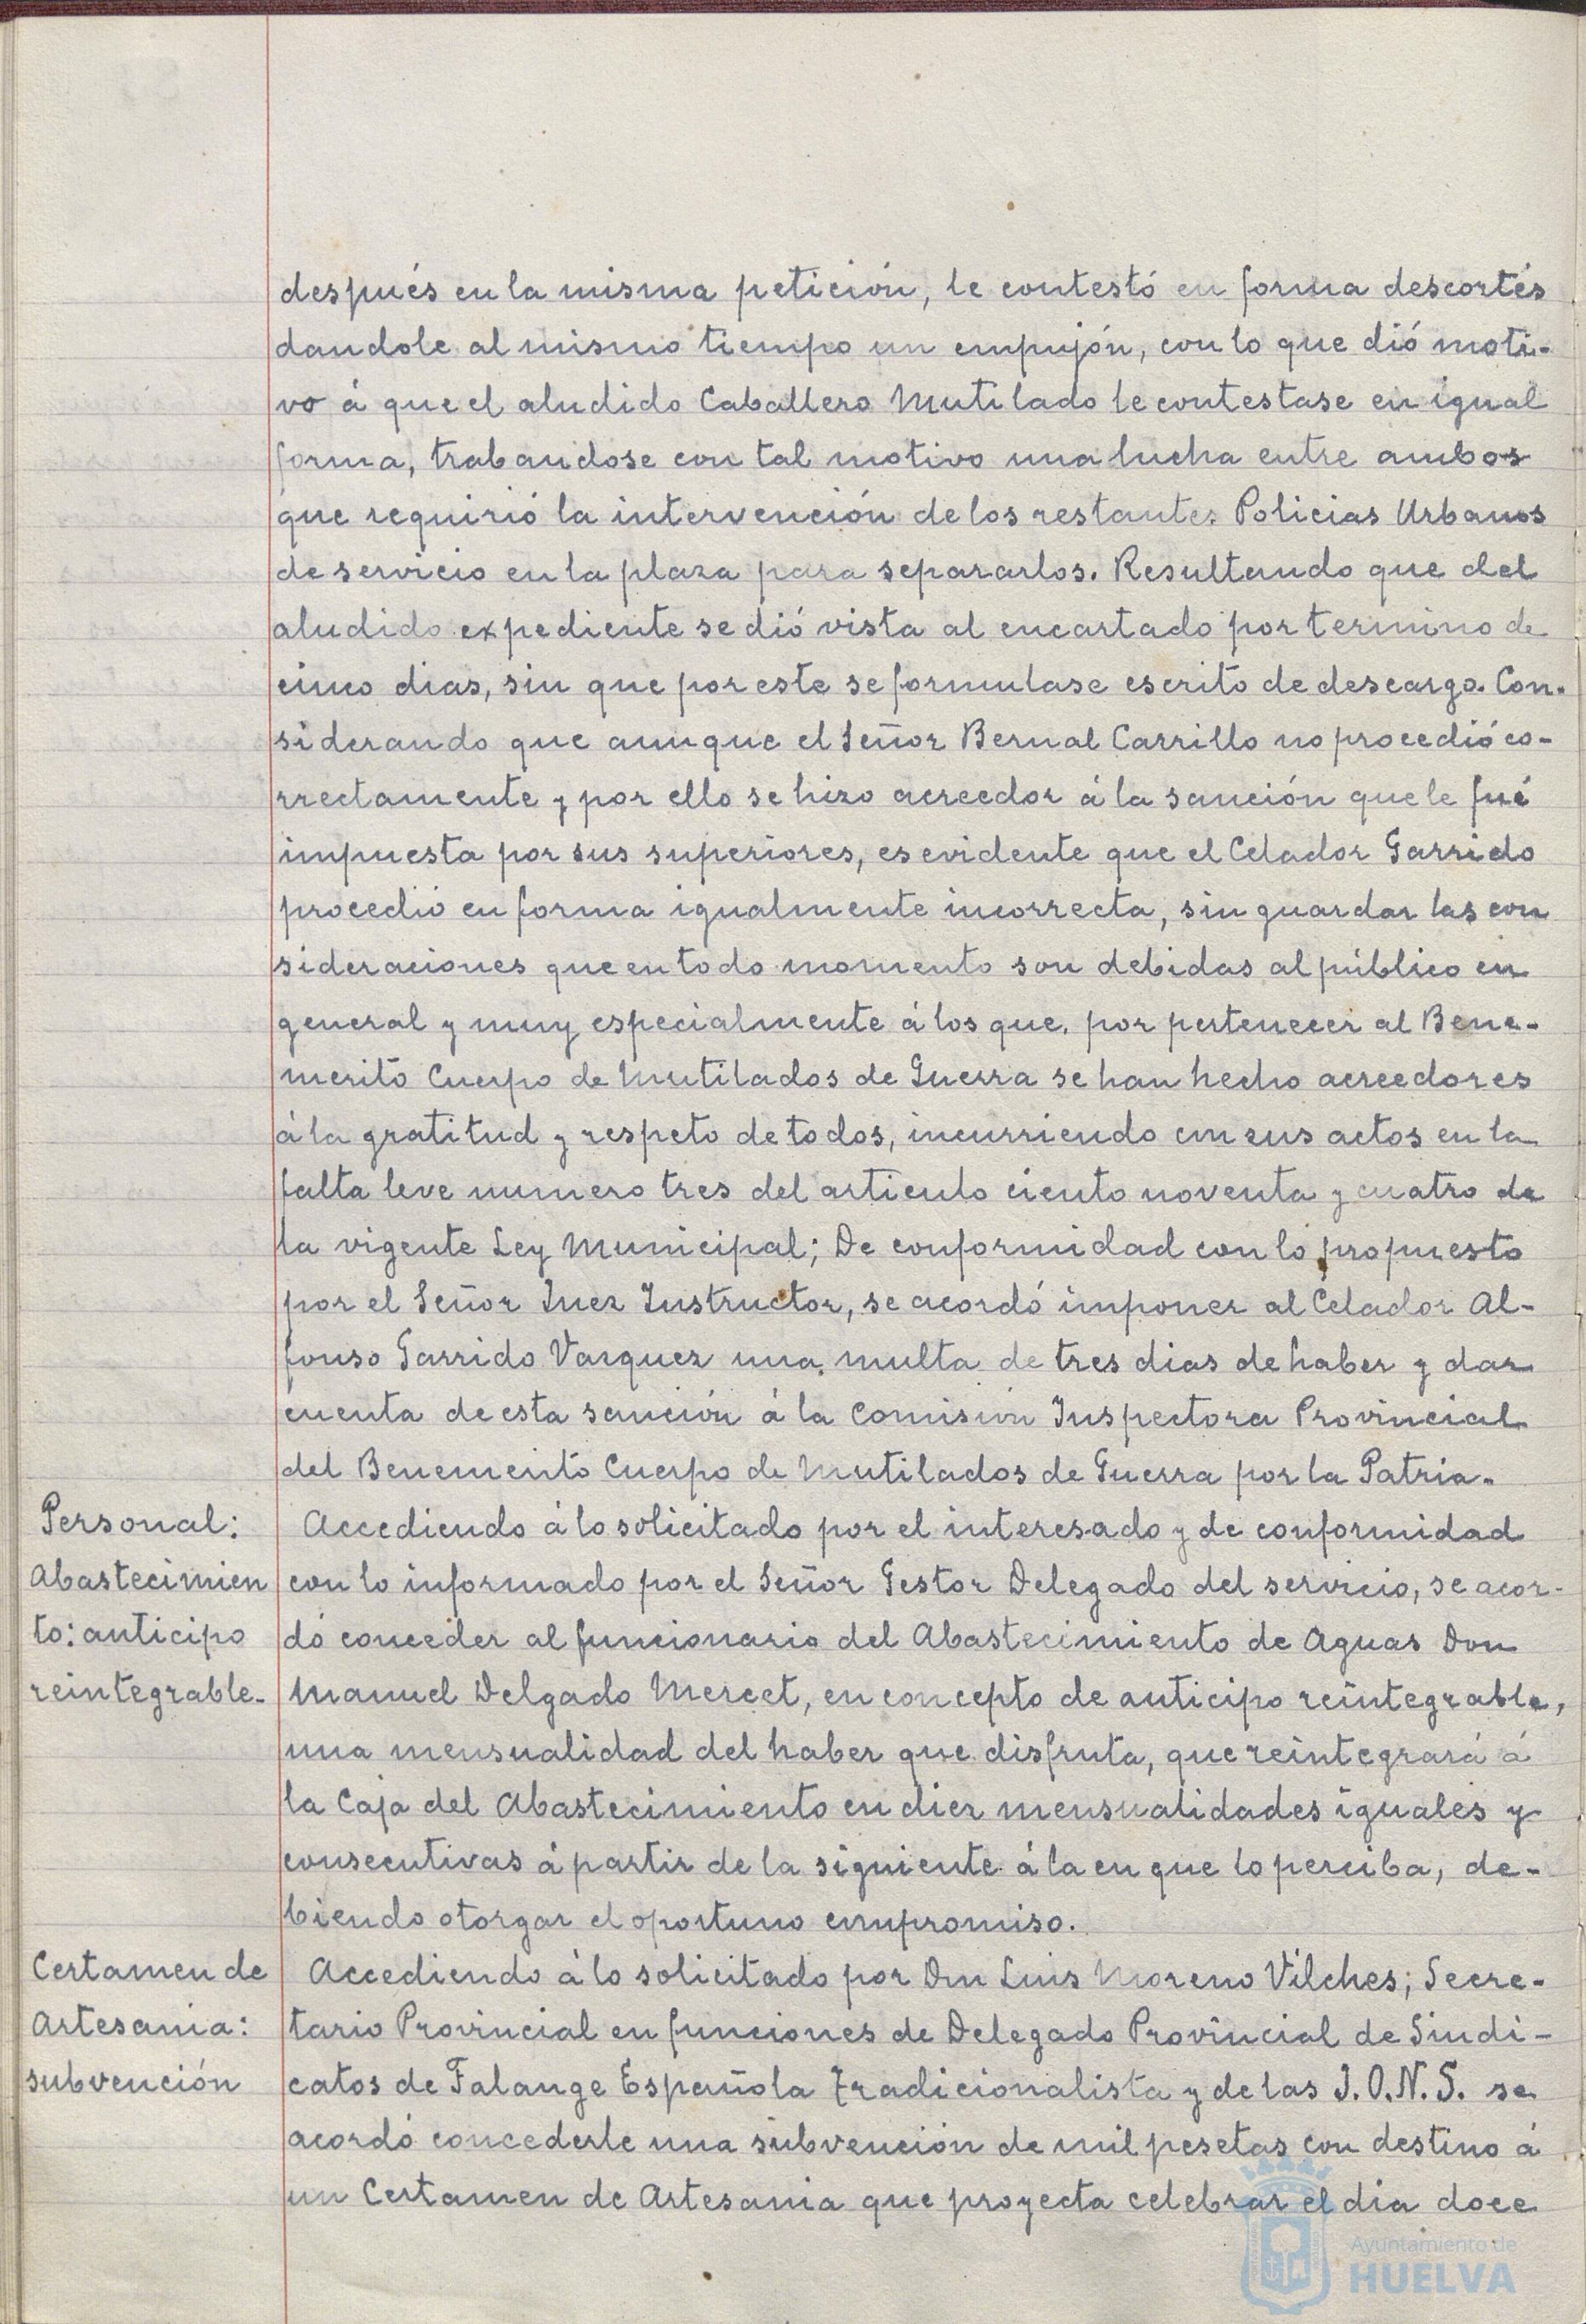 después en la misma petición, le contestó en forma descortés
dandole al mismo tiempo un empujón, con lo que dió moti-
vo á que el aludido Caballero Mutilado le contestase en igual
forma, trabandose con tal motivo una lucha entre ambos
que requirió la intervención de los restantes Policias Urbanos
de servicio en la plaza para separarlos. Resultando que del
aludido expediente se dió vista al encartado por termino de
cinco dias, sin que por este se formulase escrito de descargo. Con-
siderando que aunque el Señor Bernal Carrillo no procedió co-
rrectamente y por ello se hizo acreedor á la sanción que le fué
impuesta por sus superiores, es evidente que el Celador Garrido
procedió en forma igualmente incorrecta, sin guardar las con
sideraciones que en todo momento son debidas al público en
general y muy especialmente á los que, por pertenecer al Bene-
merito Cuerpo de Mutilados de Guerra se han hecho acreedores
á la gratitud y respeto de todos, incurriendo con sus actos en la
falta leve numero tres del articulo ciento noventa y cuatro de
la vigente Ley Municipal; De conformidad con lo propuesto
por el Señor Juez Instructor, se acordó imponer al Celador Al-
fonso Garrido Vazquez una multa de tres dias de haber y dar
cuenta de esta sanción á la Comisión Inspectora Provincial
del Benemerito Cuerpo de Mutilados de Guerra por la Patria.
Personal:
Abastecimien
to: anticipo
reintegrable.
Accediendo á lo solicitado por el interesado y de conformidad
con lo informado por el Señor Gestor Delegado del servicio, se acor-
dó conceder al funcionario del Abastecimiento de Aguas Don
Manuel Delgado Mercet, en concepto de anticipo reintegrable,
una mensualidad del haber que disfruta, que reintegrará á
la Caja del Abastecimiento en diez mensualidades iguales y
consecutivas á partir de la siguiente á la en que lo perciba, de-
biendo otorgar el oportuno compromiso.
Certamen de
Artesania:
subvención
Accediendo á lo solicitado por Don Luis Moreno Vilches; Secre-
tario Provincial en funciones de Delegado Provincial de Sindi-
catos de Falange Española Tradicionalista y de las J.O.N.S. se
acordó concederle una subvención de mil pesetas con destino á
un Certamen de Artesania que proyecta celebrar el dia doce
Ayuntamiento de
HUELVA